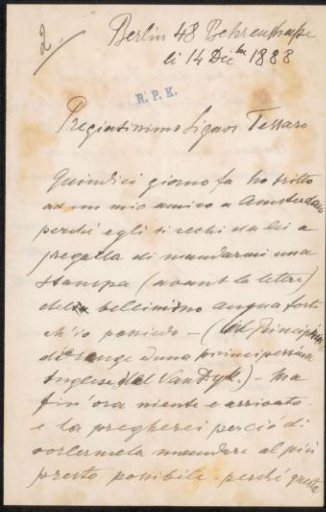 2.
Berlin 48 Behrenstrasse
li 14 Dicbre 1888
R. P. K.
Pregiatissimo Signor Tessaro
Quindici giorno fa ho scritto
ad un mio amico a Amsterdam
perché egli si rechi da lei a
pregalla di mandarmi una
stampa (avant la lettre)
della bellissimo acqua forte
ch'io posiedo - (
d'Orange d'una principessa
Inglese del Van Dyk.) - Ma
fin'ora niente e arrivato
e la pregherei percio di
volermela mandare al più
presto possibile - perché questa